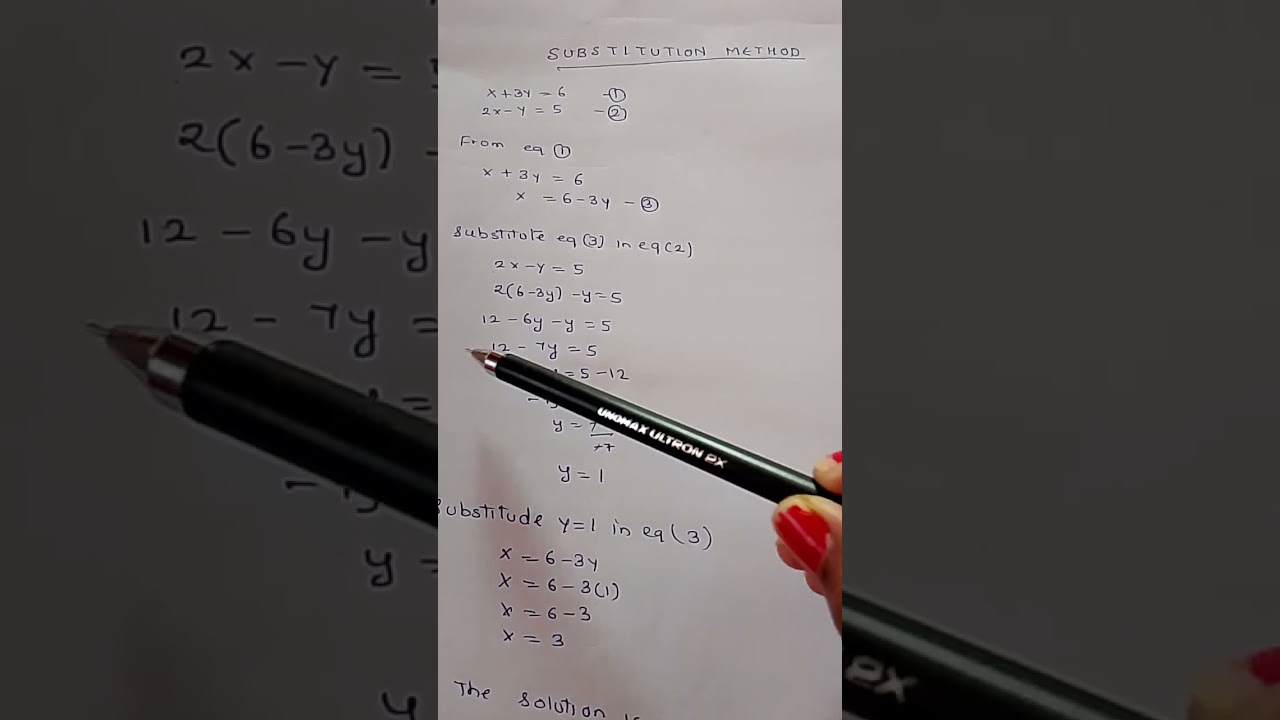 SUBSTITUTION METHOD
x + 3y = 6 - ①
2x - y = 5 - ②
From eq ①
x + 3y = 6
x = 6 - 3y - ③
Substitute eq (3) in eq (2)
2x - y = 5
2(6 - 3y) - y = 5
12 - 6y - y = 5
12 - 7y = 5
= 5 - 12
y =
y = 1
Substitude y = 1 in eq (3)
x = 6 - 3y
x = 6 - 3(1)
x = 6 - 3
x = 3
The solution is
UNOMAX ULTRON 2X